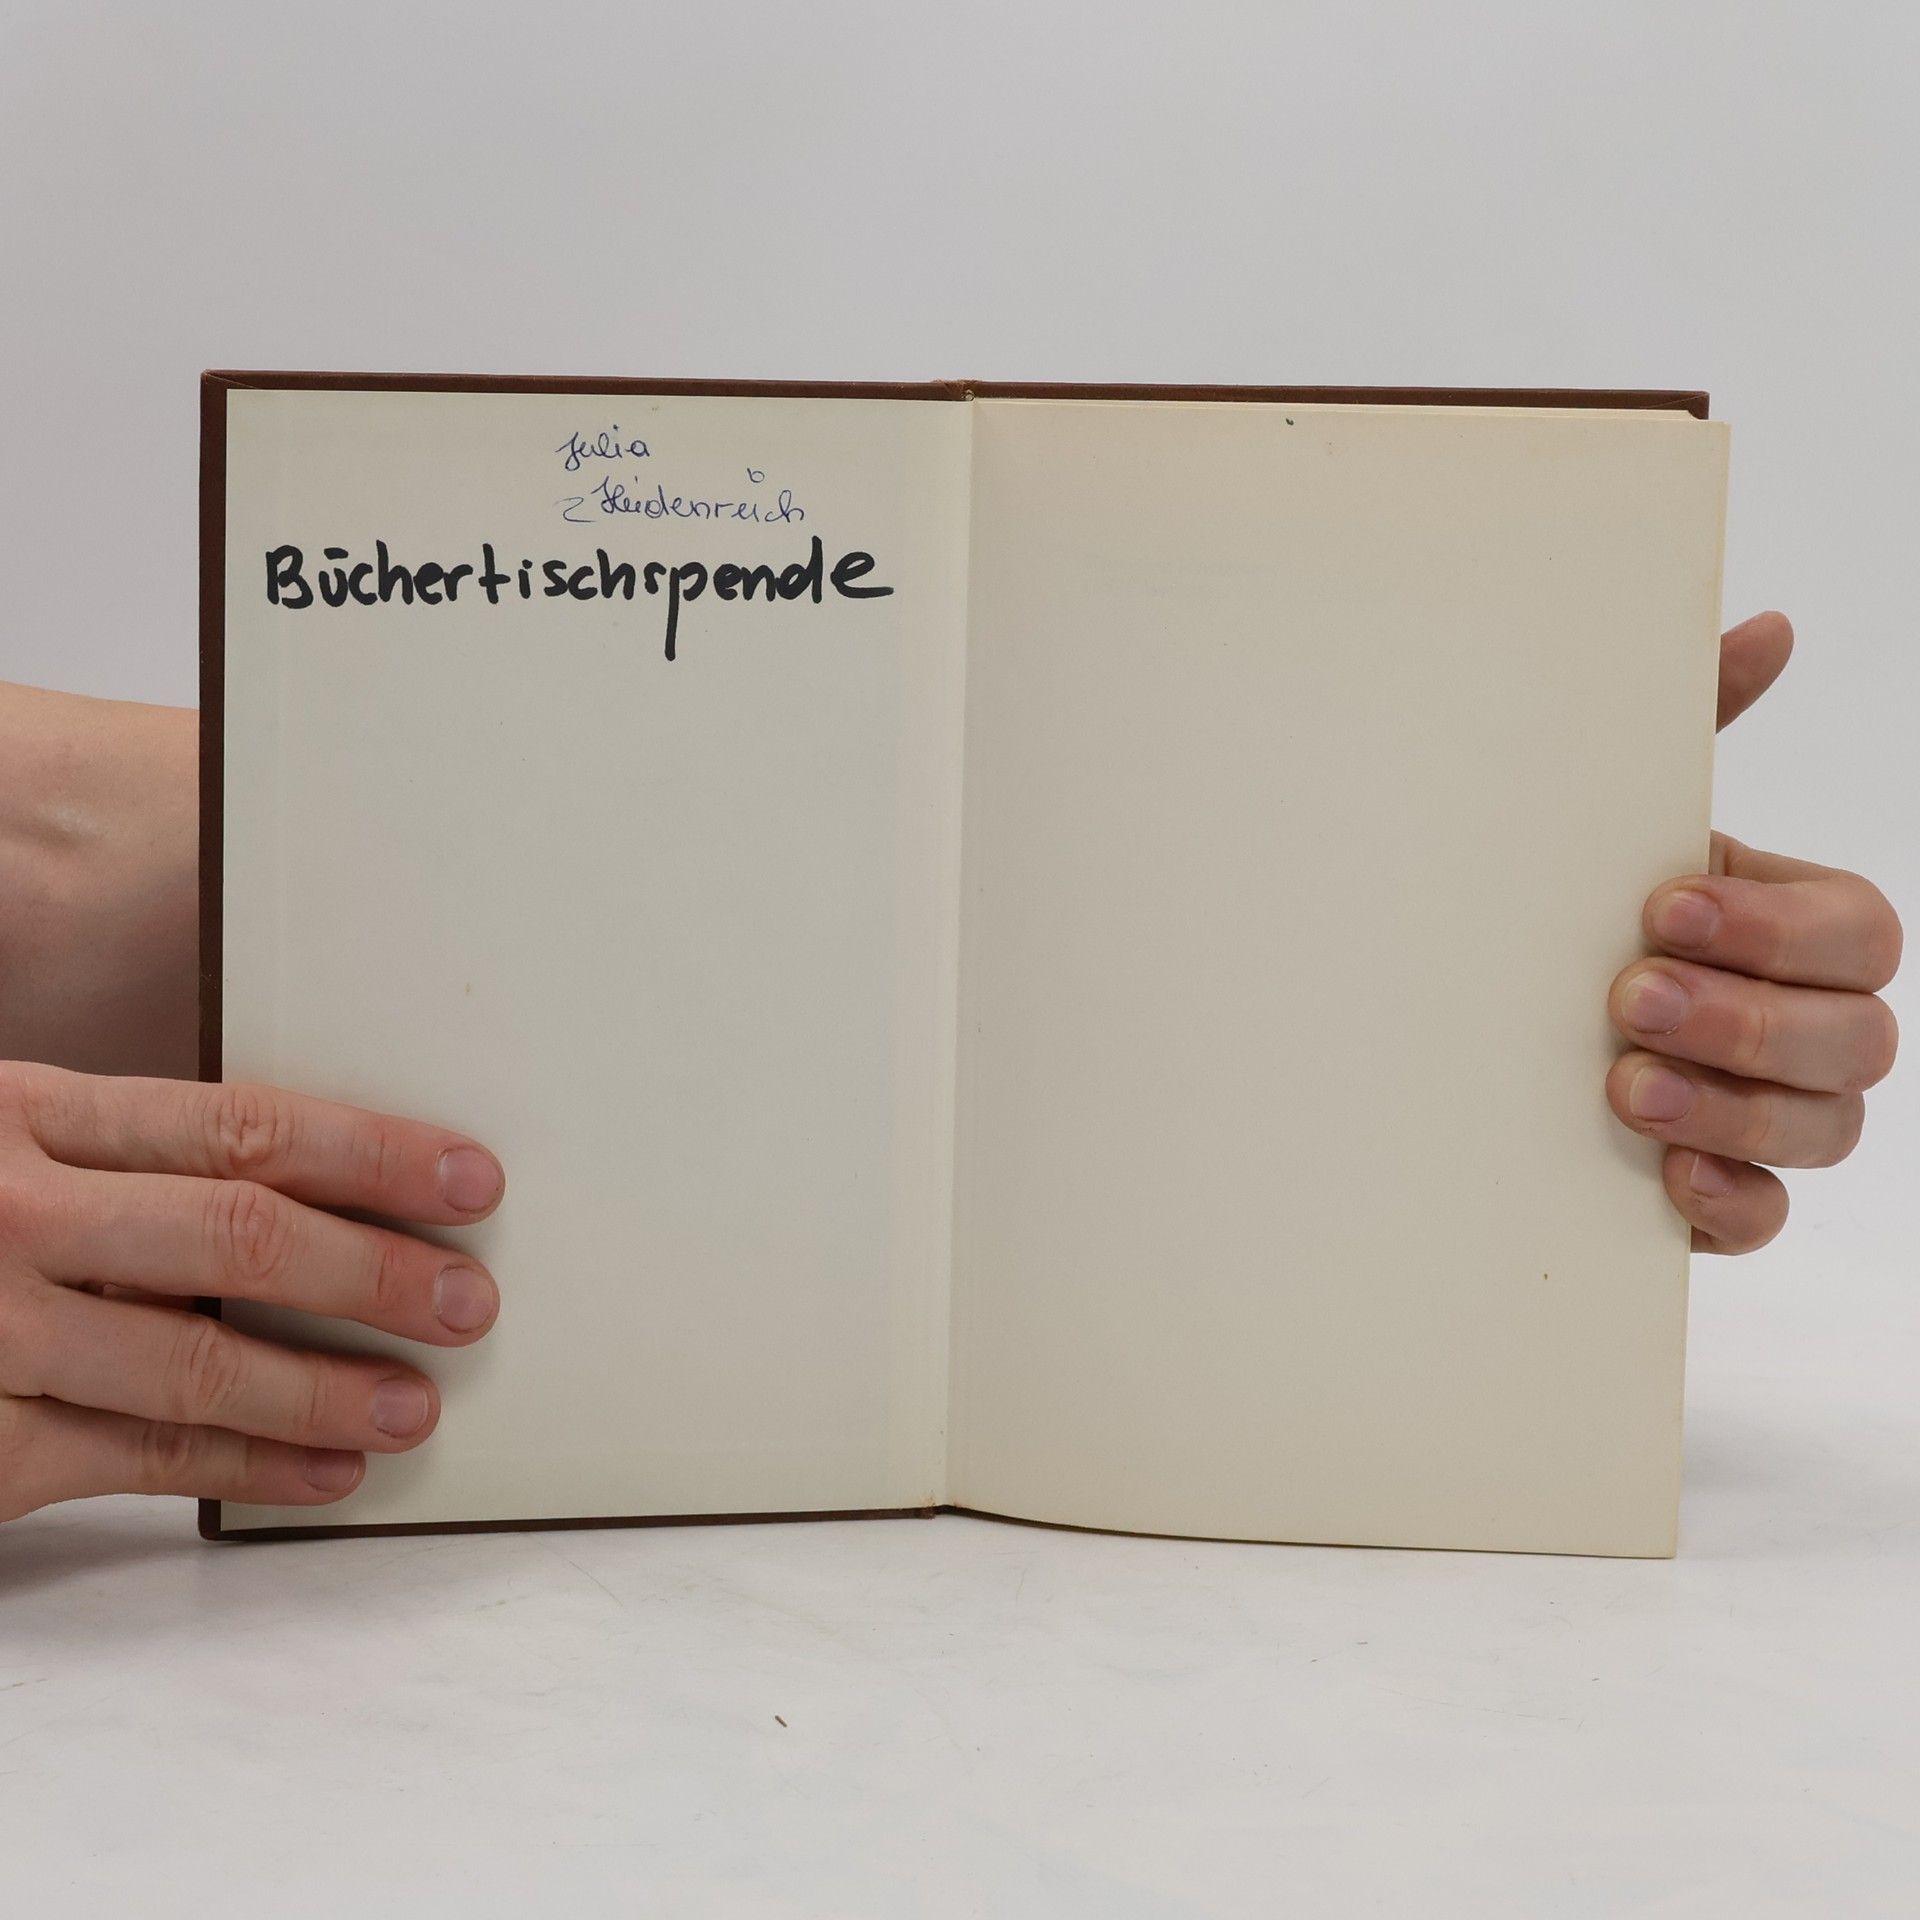 Julia
Heidenreich
Büchertischspende